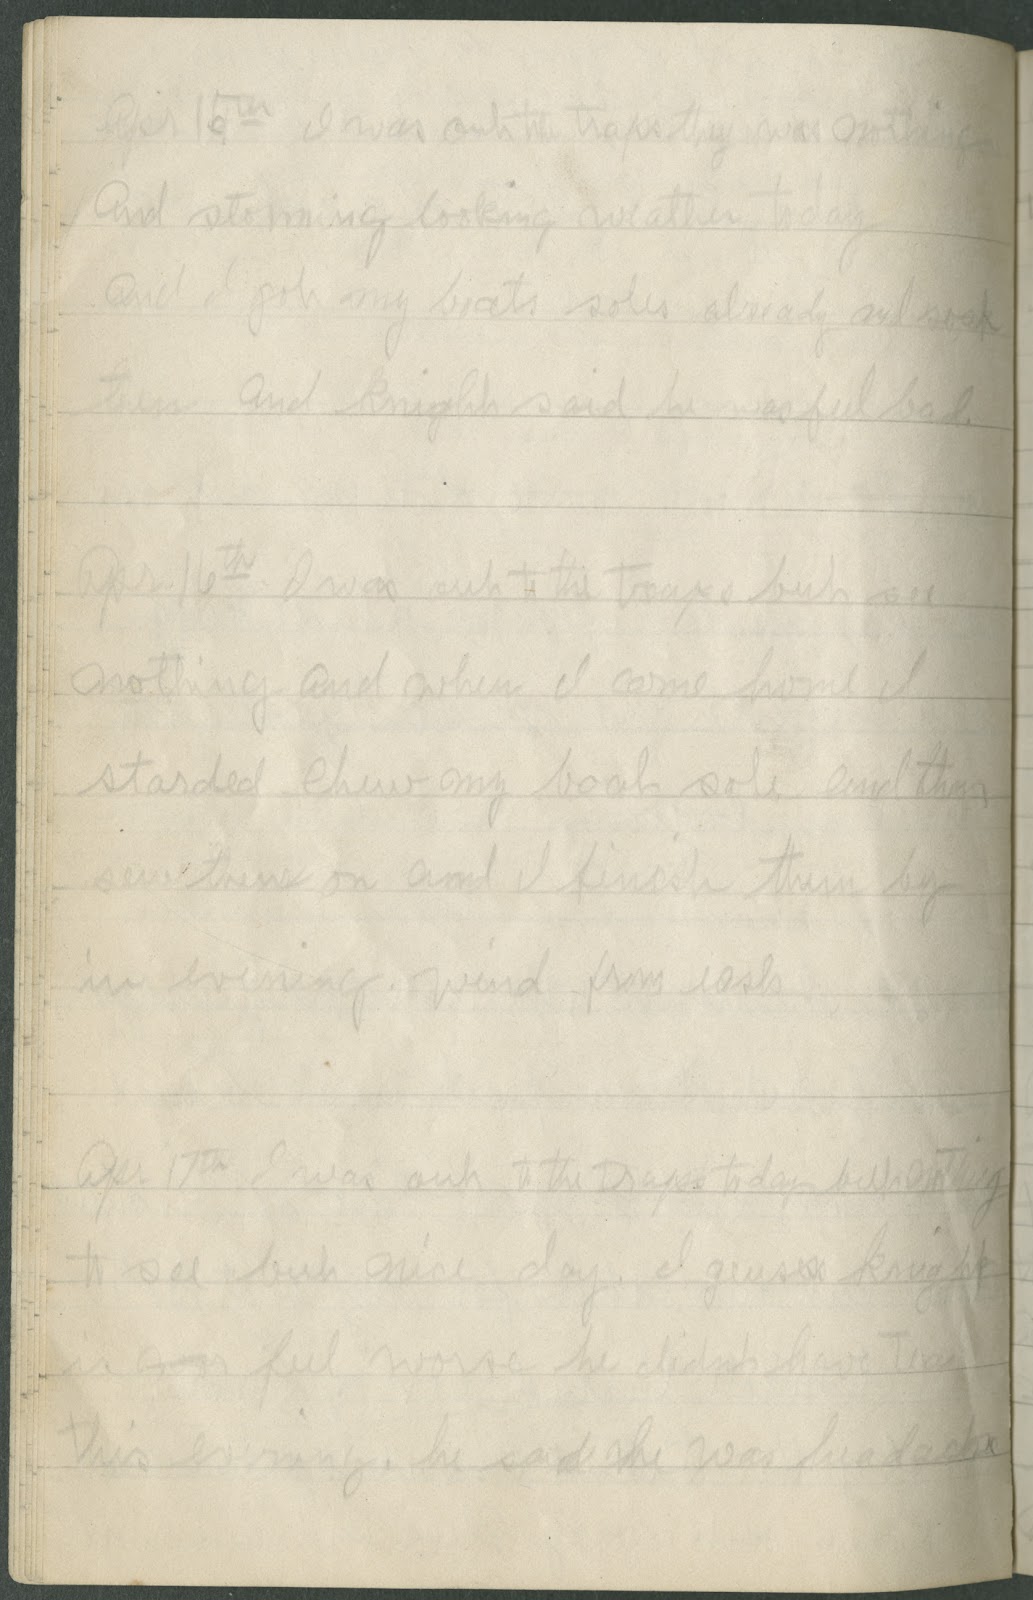 Apr 15th I was out to the traps they was nothing
And storming looking weather today
And I got my boots soles already and soak
them And knight said he was feel bad.
Apr. 16th I was out to the traps but see
nothing and when I come home I
starded chew my boot sole and then
sew them on and I finish them by
in evening. wind from east
Apr 17th I was out to the traps today but nothing
to see but nice day. I geuse knight
is feel worse he didn't have Tea
this evening. he said he was headache